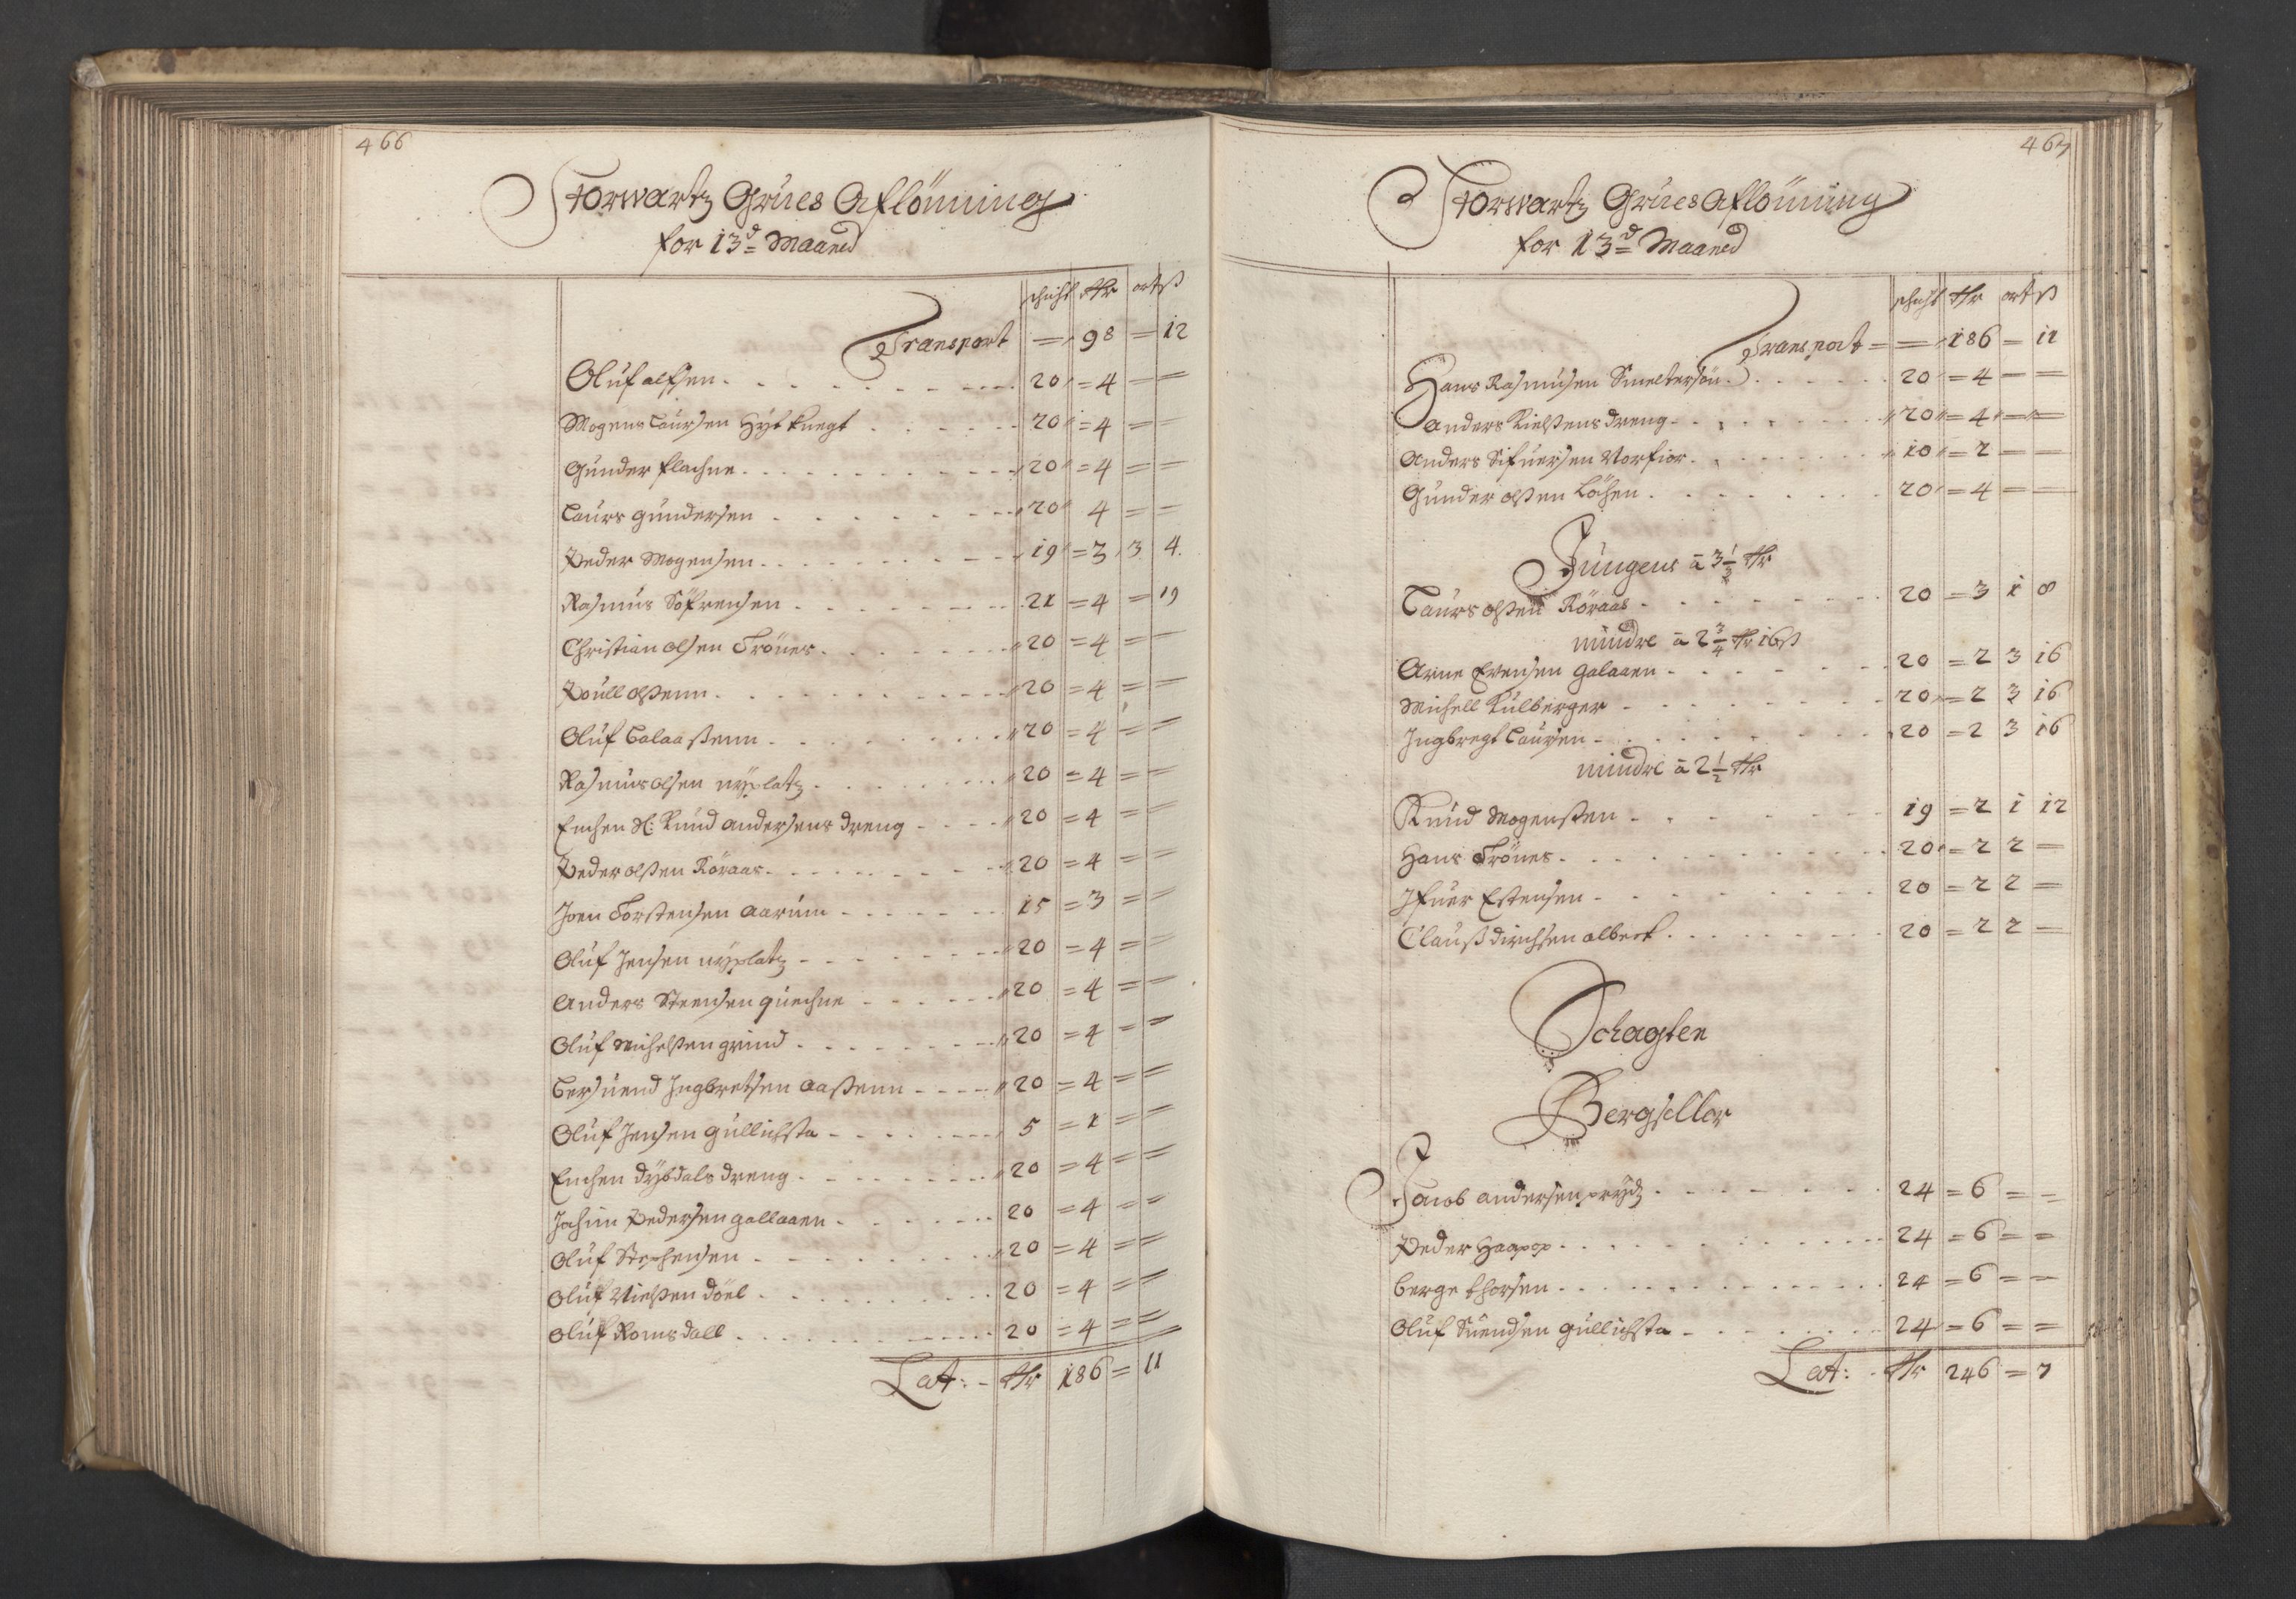 466
Storwartz Grues Aflönning
for 13d Maaned
schicht rthr ort ß
Transport = 98 = 12
Oluf alfsen 20 = 4 = =
Mogens Laursen Hytknegt 20 = 4 = =
Gunder flachne 20 = 4 = =
Laurs gundersen 20 4 = =
Peder Mogensen 19 = 3 3 4.
Rasmus Söfrensen 21 = 4 = 19
Christian olsen Trönes 20 = 4 = =
Poull olßenn 20 = 4 = =
Oluf Calaaßenn 20 = 4 = =
Rasmus olsen nÿplatz 20 = 4 = =
Enchen Sl: Knud andersens dreng 20 = 4 = =
Peder olßen Röraas 20 = 4 = =
Joen Torstensen aarum 15 = 3 = =
Oluf Jensen nÿplatz 20 = 4 = =
Anders Steensen quechne 20 = 4 = =
Oluf Michelßen grind 20 = 4 = =
Bersuend Ingbretsen aaßenn 20 = 4 = =
Oluf Jensen gullichsta 5 = 1 = =
Enchen dÿbdals dreng 20 = 4 = =
Jochim Pedersen gallaaen 20 = 4 = =
Oluf Stephensen 20 = 4 = =
Oluf Nielßen döel 20 = 4 = =
Oluf Romsdall 20 = 4 = =
Lat: rthr 186 = 11
467
Storwartz Grues Aflönning
for 13d Maaned
schicht rthr ort ß
Transport = = 186 = 11
Hans Rasmusen Smeltersön 20 = 4 = =
Anders Nielßens dreng 20 = 4 = =
Anders Sifuersen Norfior 10 = 2 = =
Gunder olßen Löchen 20 = 4 = =
Jungens â 3 1/3 rthr
Laurs olßen Röraas 20 = 3 1 8
mindre â 2 3/4 rthr 16ß
Arne Evensen galaaen 20 = 2 3 16
Michell Kulberger 20 = 2 3 16
Ingbregt Laursen 20 = 2 3 16
mindre â 2 1/2 rthr
Knud Mogenßen 19 = 2 1 12
Hans Trönes 20 = 2 2 =
Ifuer Estensen 20 = 2 2 =
Clauß dirichsen albert 20 = 2 2 =
Schagten
Bergseller
Jacob andersen prydz 24 = 6 = =
Peder Haapop 24 = 6 = =
berge thorsen 24 = 6 = =
Oluf Suendsen gullichsta 24 = 6 = =
Lat: rthr 246 = 7